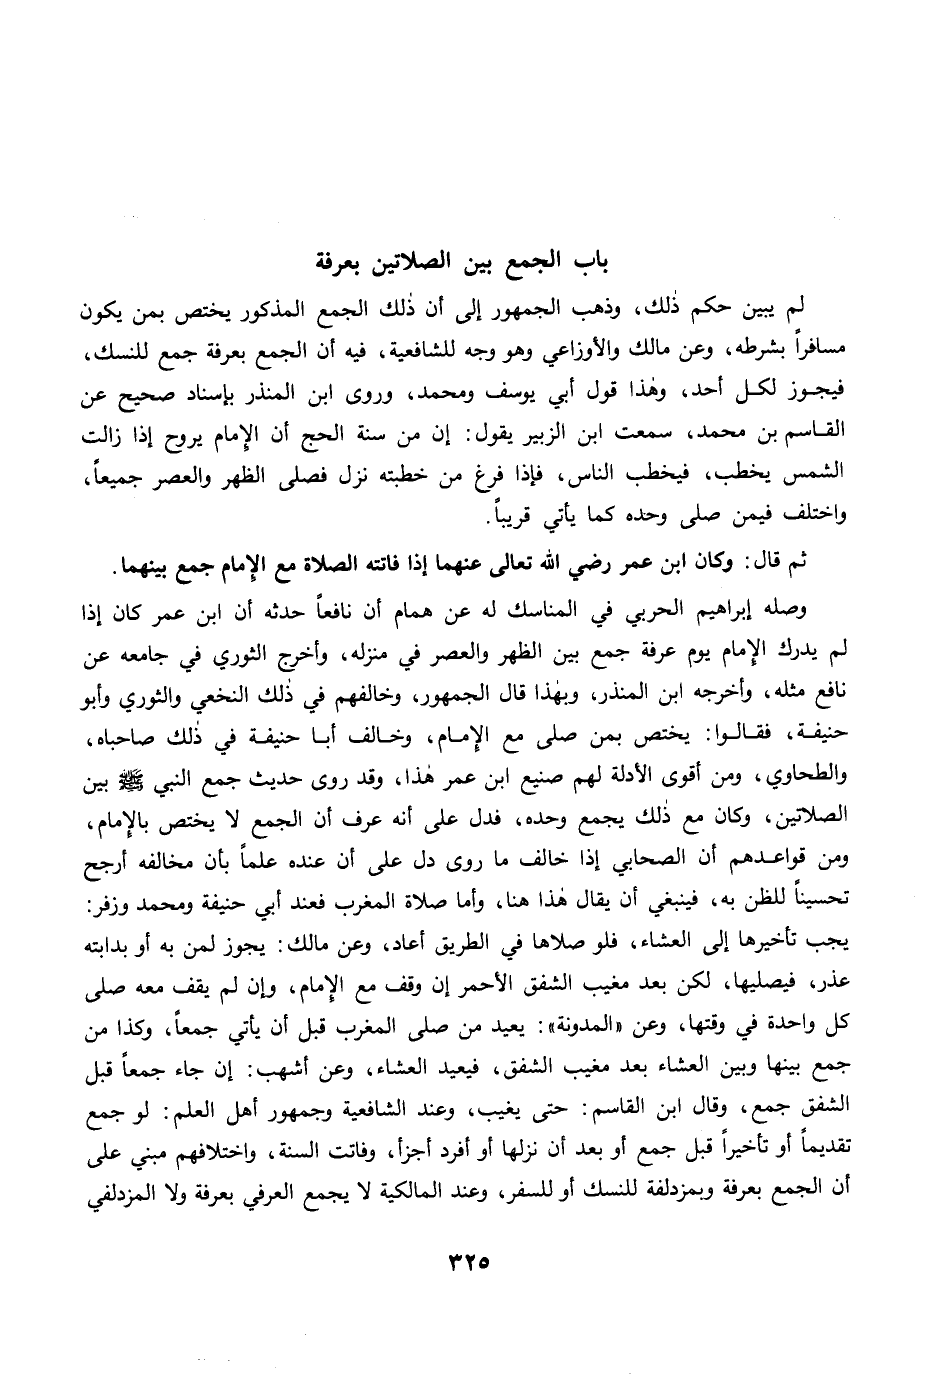 باب الجمع بين الصلاتين بعرفة
لم يبين حكم ذٰلك، وذهب الجمهور إلى أن ذٰلك الجمع المذكور يختص بمن يكون
مسافراً بشرطه، وعن مالك والأوزاعي وهو وجه للشافعية، فيه أن الجمع بعرفة جمع للنسك،
فيجوز لكل أحد، وهٰذا قول أبي يوسف ومحمد، وروى ابن المنذر بإسناد صحيح عن
القاسم بن محمد، سمعت ابن الزبير يقول: إن من سنة الحج أن الإمام يروح إذا زالت
الشمس يخطب، فيخطب الناس، فإذا فرغ من خطبته نزل فصلى الظهر والعصر جميعاً،
واختلف فيمن صلى وحده كما يأتي قريباً.
ثم قال: وكان ابن عمر رضي الله تعالى عنهما إذا فاتته الصلاة مع الإمام جمع بينهما.
وصله إبراهيم الحربي في المناسك له عن همام أن نافعاً حدثه أن ابن عمر كان إذا
لم يدرك الإمام يوم عرفة جمع بين الظهر والعصر في منزله، وأخرج الثوري في جامعه عن
نافع مثله، وأخرجه ابن المنذر، وبهٰذا قال الجمهور، وخالفهم في ذٰلك النخعي والثوري وأبو
حنيفة، فقالوا: يختص بمن صلى مع الإمام، وخالف أبا حنيفة في ذٰلك صاحباه،
والطحاوي، ومن أقوى الأدلة لهم صنيع ابن عمر هٰذا، وقد روى حديث جمع النبي ﷺ بين
الصلاتين، وكان مع ذٰلك يجمع وحده، فدل على أنه عرف أن الجمع لا يختص بالإمام،
ومن قواعدهم أن الصحابي إذا خالف ما روى دل على أن عنده علماً بأن مخالفه أرجح
تحسيناً للظن به، فينبغي أن يقال هٰذا هنا، وأما صلاة المغرب فعند أبي حنيفة ومحمد وزفر:
يجب تأخيرها إلى العشاء، فلو صلاها في الطريق أعاد، وعن مالك: يجوز لمن به أو بدابته
عذر، فيصليها، لكن بعد مغيب الشفق الأحمر إن وقف مع الإمام، وإن لم يقف معه صلى
كل واحدة في وقتها، وعن «المدونة»: يعيد من صلى المغرب قبل أن يأتي جمعاً، وكذا من
جمع بينها وبين العشاء بعد مغيب الشفق، فيعيد العشاء، وعن أشهب: إن جاء جمعاً قبل
الشفق جمع، وقال ابن القاسم: حتى يغيب، وعند الشافعية وجمهور أهل العلم: لو جمع
تقديماً أو تأخيراً قبل جمع أو بعد أن نزلها أو أفرد أجزأ، وفاتت السنة، واختلافهم مبني على
أن الجمع بعرفة وبمزدلفة للنسك أو للسفر، وعند المالكية لا يجمع العرفي بعرفة ولا المزدلفي
٣٢٥